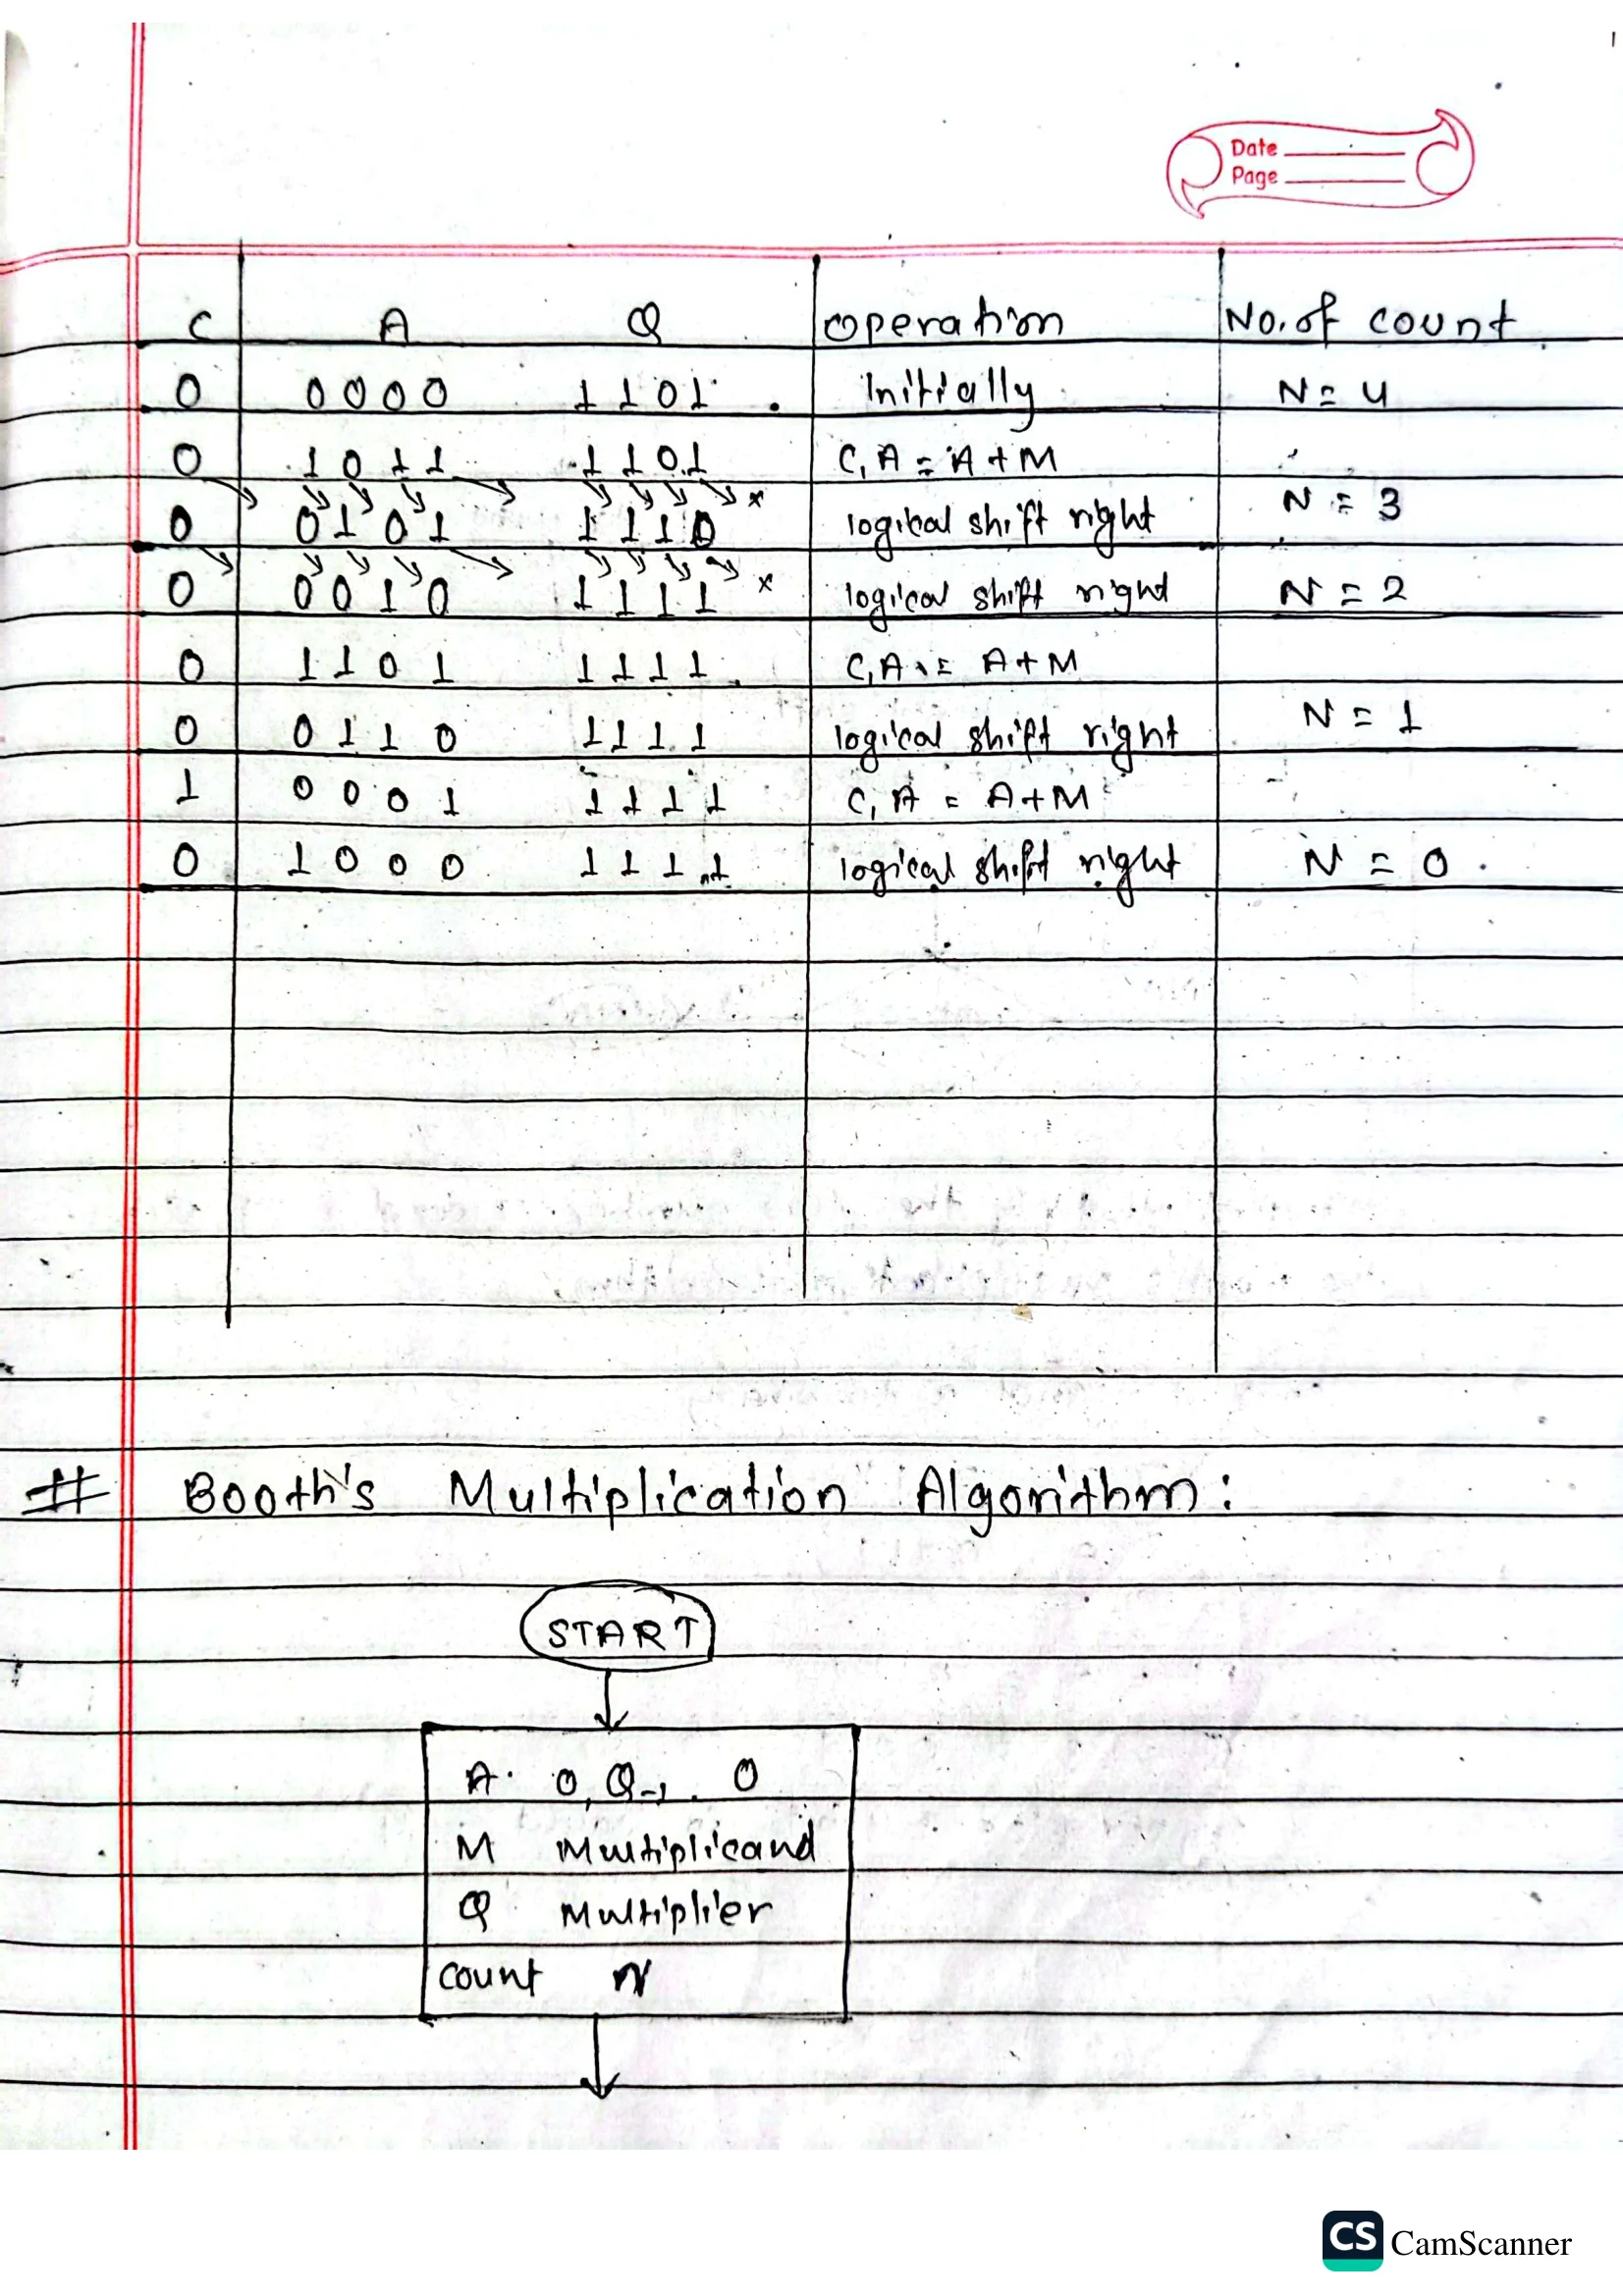 Date
Page
C A Q operation No. of count
0 0000 1101 Initially N = 4
0 1011 1101 C, A = A + M
0 0101 1110 logical shift right N = 3
0 0010 1111 logical shift right N = 2
0 1101 1111 C, A = A + M
0 0110 1111 logical shift right N = 1
1 0001 1111 C, A = A + M
0 1000 1111 logical shift right N = 0
# Booth's Multiplication Algorithm:
START
A 0, Q-1 0
M Multiplicand
Q Multiplier
count N
CS CamScanner